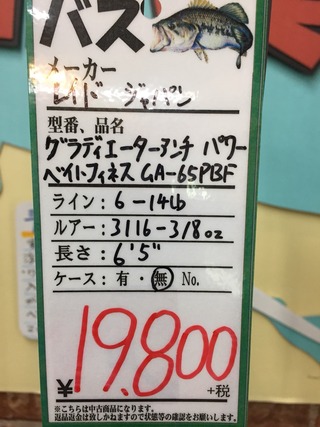 バス
メーカー
レイドージャパン
型番、品名
グラディエーターアンチ パワー
ベイトフィネス GA-65PBF
ライン：6-14lb
ルアー：3116-3/8oz
長さ：6'5"
ケース：有・無 No.
¥19,800
+税
※こちらは中古商品になります。
返品返金は致しかねますので状態等の確認をお願いします。